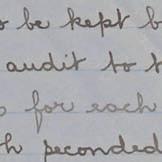 to be kept b
audit to t
for each
seconded